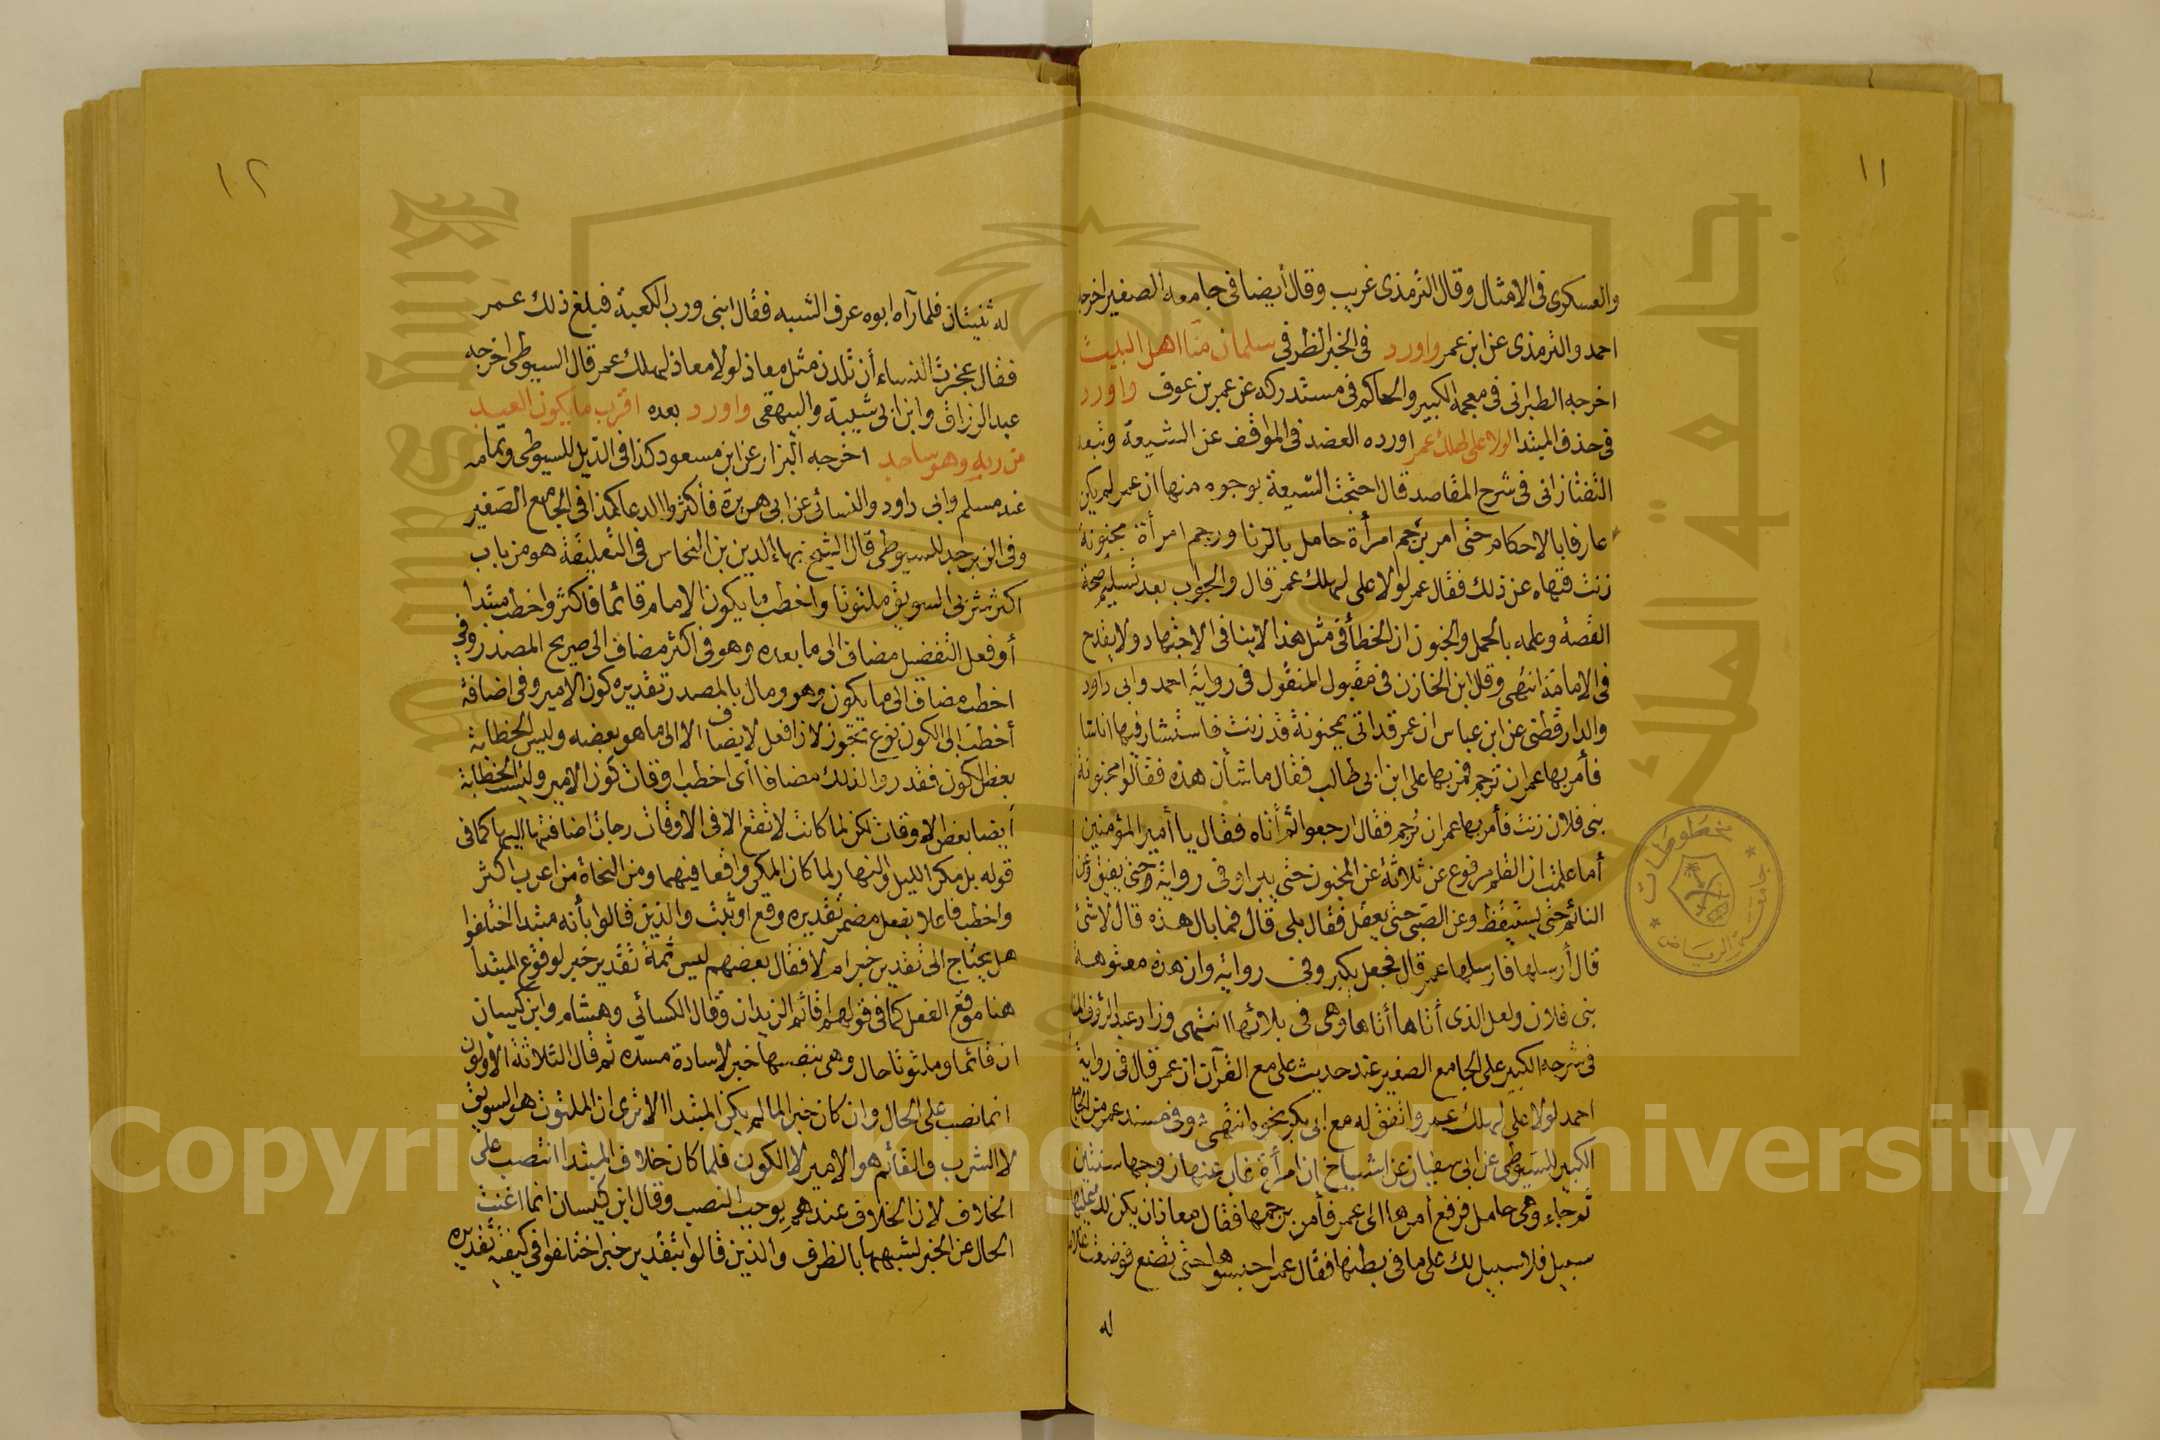 ١١
والعسكرى فى الامثال وقال الترمذى غريب وقال أيضا فى جامعه الصغير اخرجه
احمد والترمذى عن ابن عمر واورد فى الخبر الظرفى سلمان منا اهل البيت
اخرجه الطبرانى فى معجمه الكبير والحاكم فى مستدركه عن عمر بن عوف واورد
فى حذف المبتدا لولا على لهلك عمر اورده العضد فى المواقف عن الشيعة وتبعه
التفتازانى فى شرح المقاصد قال احتجت الشيعة بوجوه منها ان عمر لم يكن
عارفا بالاحكام حتى امر برجم امرأة حامل بالزنا ورجم امرأة مجنونة
زنت فنهاه عن ذلك فقال عمر لولا على لهلك عمر قال والجواب بعد تسليم صحة
القصة وعلمه بالحمل والجنون ان الخطأ فى مثل هذا لا ينافى الاجتهاد ولا يقدح
فى الامامة انتهى وقال ابن الخازن فى مقبول المنقول فى رواية احمد وابى داود
والدارقطنى عن ابن عباس ان عمر قد اتى بمجنونة قد زنت فاستشار فيها اناسا
فأمر بها عمر ان ترجم فمر بها على ابن ابى طالب فقال ما شأن هذه فقالوا مجنونة
بنى فلان زنت فأمر بها عمر ان ترجم فقال ارجعوا ثم اتاه فقال يا أمير المؤمنين
أما علمت ان القلم مرفوع عن ثلاثة عن المجنون حتى يبرا وفى رواية حتى يفيق وعن
النائم حتى يستيقظ وعن الصبى حتى يعقل فقال بلى قال فما بال هذه قال لا شئ
قال أرسلها فارسلها عمر قال فجعل يكبر وفى رواية وان هذه معتوهة
بنى فلان ولعل الذى أتاها أتاها وهى فى بلائها انتهى وزاد عبد الرؤف
فى شرحه الكبير على الجامع الصغير عند حديث على مع القرآن ان عمر قال فى رواية
احمد لولا على لهلك عمر واتفق له مع ابى بكر نحوه انتهى وفى مسند عمر من الجامع
الكبير للسيوطى عن ابى سفيان عن اشياخ ان امرأة غاب عنها زوجها سنتين
ثم جاء وهى حامل فرفع أمرها الى عمر فأمر برجمها فقال معاذ ان يكن لك عليها
سبيل فلا سبيل لك على ما فى بطنها فقال عمر احبسوها حتى تضع فوضعت غلاما
له
١٢
له ثنيتان فلما رآه ابوه عرف الشبه فقال ابنى ورب الكعبة فبلغ ذلك عمر
فقال عجزت النساء أن تلدن مثل معاذ لولا معاذ لهلك عمر قال السيوطى اخرجه
عبد الرزاق وابن ابى شيبة والبيهقى واورد بعده اقرب ما يكون العبد
من ربه وهو ساجد اخرجه البزار عن ابن مسعود كذا فى الذيل للسيوطى وتمامه
عند مسلم وابى داود والنسائى عن ابى هريرة فأكثروا الدعا كذا فى الجامع الصغير
وفى الزبرجد للسيوطى قال الشيخ بهاء الدين بن النحاس فى التعليقة هو من باب
اكثر شربى السويق ملتوتا واخطب ما يكون الامام قائما فاكثر واخطب مبتدا
أو فعل التفضيل مضاف الى ما بعده وهو فى اكثر مضاف الى صريح المصدر وفى
اخطب مضاف الى ما يكون وهو ومال بالمصدر تقديره كون الامير وفى اضافة
أخطب الى الكون نوع تجوز لان افعل لا يضاف الا الى ما هو بعضه وليس الخطابة
بعض الكون فقدروا لذلك مضافا أى اخطب اوقات كون الامير وليست الخطابة
أيضا بعض الاوقات لكن لما كانت لا تقع الا فى الاوقات رجات اضافتها اليها كما فى
قوله بل مكر الليل والنهار لما كان المكر واقعا فيهما ومن النحاة من اعرب اكثر
واخطب فاعلا بفعل مضمر تقديره وقع او ثبت والذين قالوا بأنه مبتدا اختلفوا
هل يحتاج الى تقدير خبر ام لا فقال بعضهم ليس ثمة تقدير خبر لوقوع المبتدا
هنا موقع الفعل كما فى قولهم اقائم الزيدان وقال الكسائى وهشام وابن كيسان
ان قائما وملتوتا حال وهى بنفسها خبر لا سادة مسده ثم قال الثلاثة الاولون
انما نصب على الحال وان كان خبرا لما لم يكن المبتدا الا ترى ان الملتوت هو السويق
لا الشرب والقائم هو الامير لا الكون فلما كان خلاف المبتدا انتصب على
الخلاف لان الخلاف عندهم يوجب النصب وقال ابن كيسان انما اغنت
الحال عن الخبر لشبهها بالظرف والذين قالوا بتقدير خبر اختلفوا فى كيفية تقديره
جامعة الملك سعود
King Saud University
مخطوطات
جامعة الرياض
Copyright © King Saud University